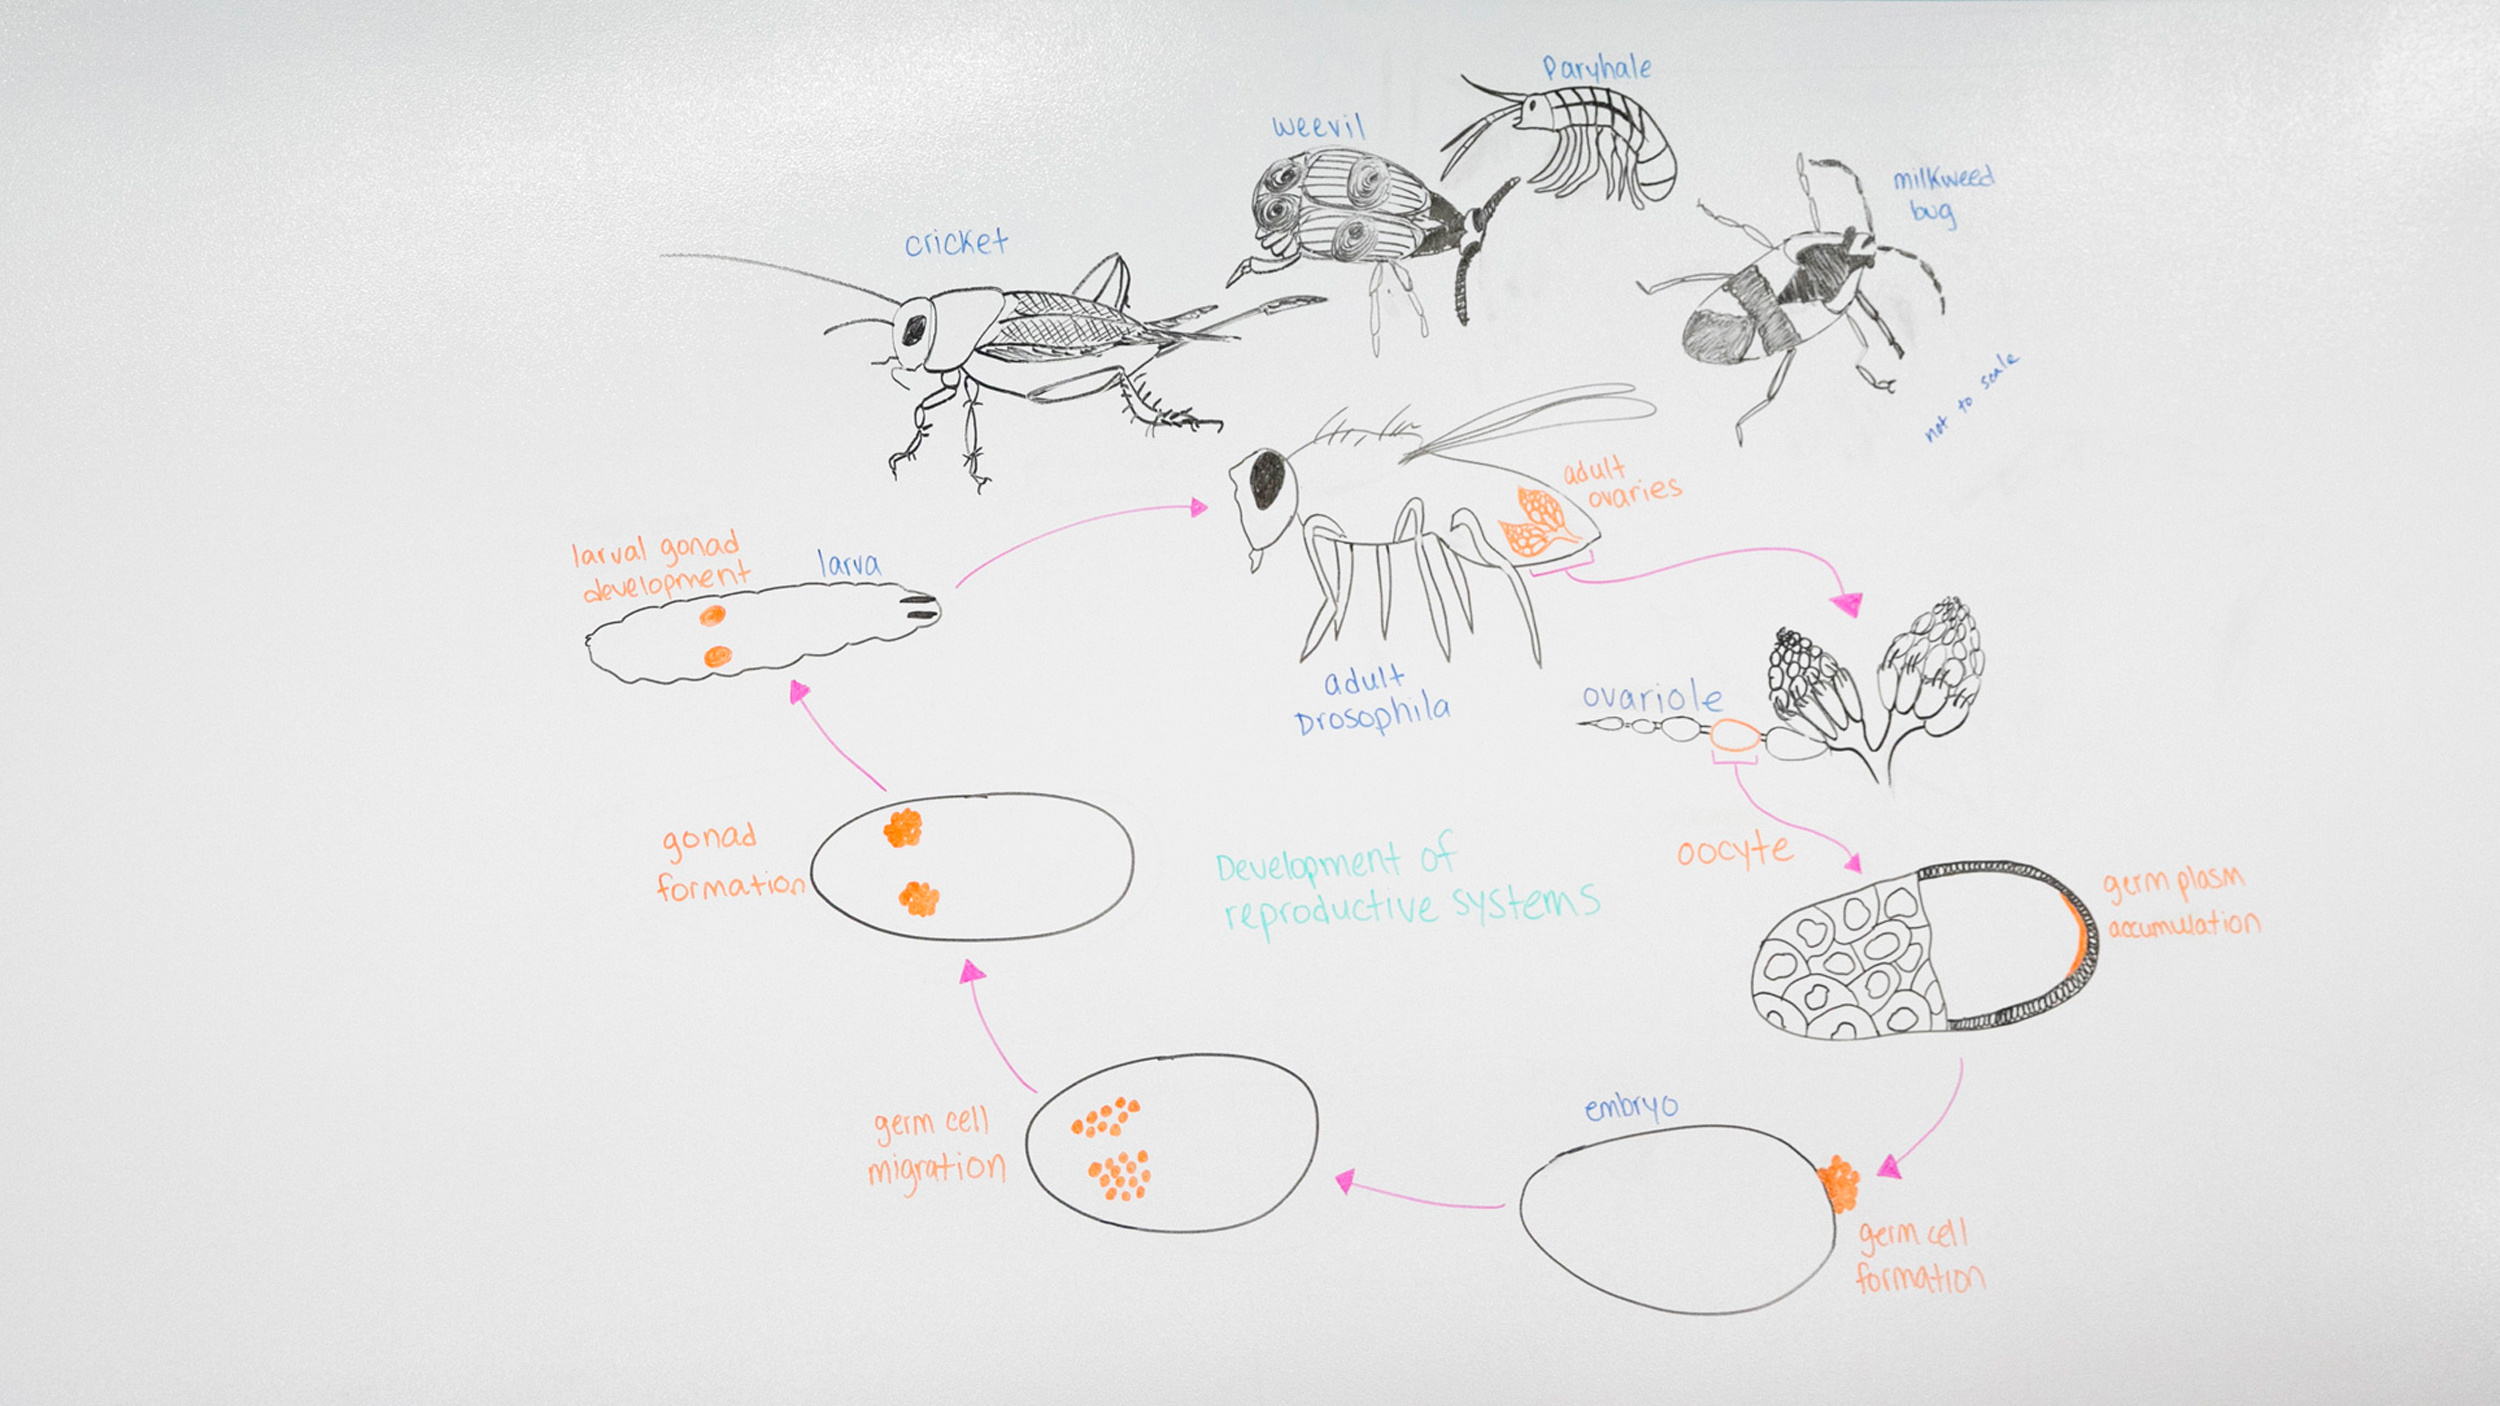 Paryhale
weevil
milkweed
bug
cricket
not to scale
adult
ovaries
larval gonad
development
larva
adult
Drosophila
ovariole
gonad
formation
Development of
reproductive systems
oocyte
germ plasm
accumulation
germ cell
migration
embryo
germ cell
formation